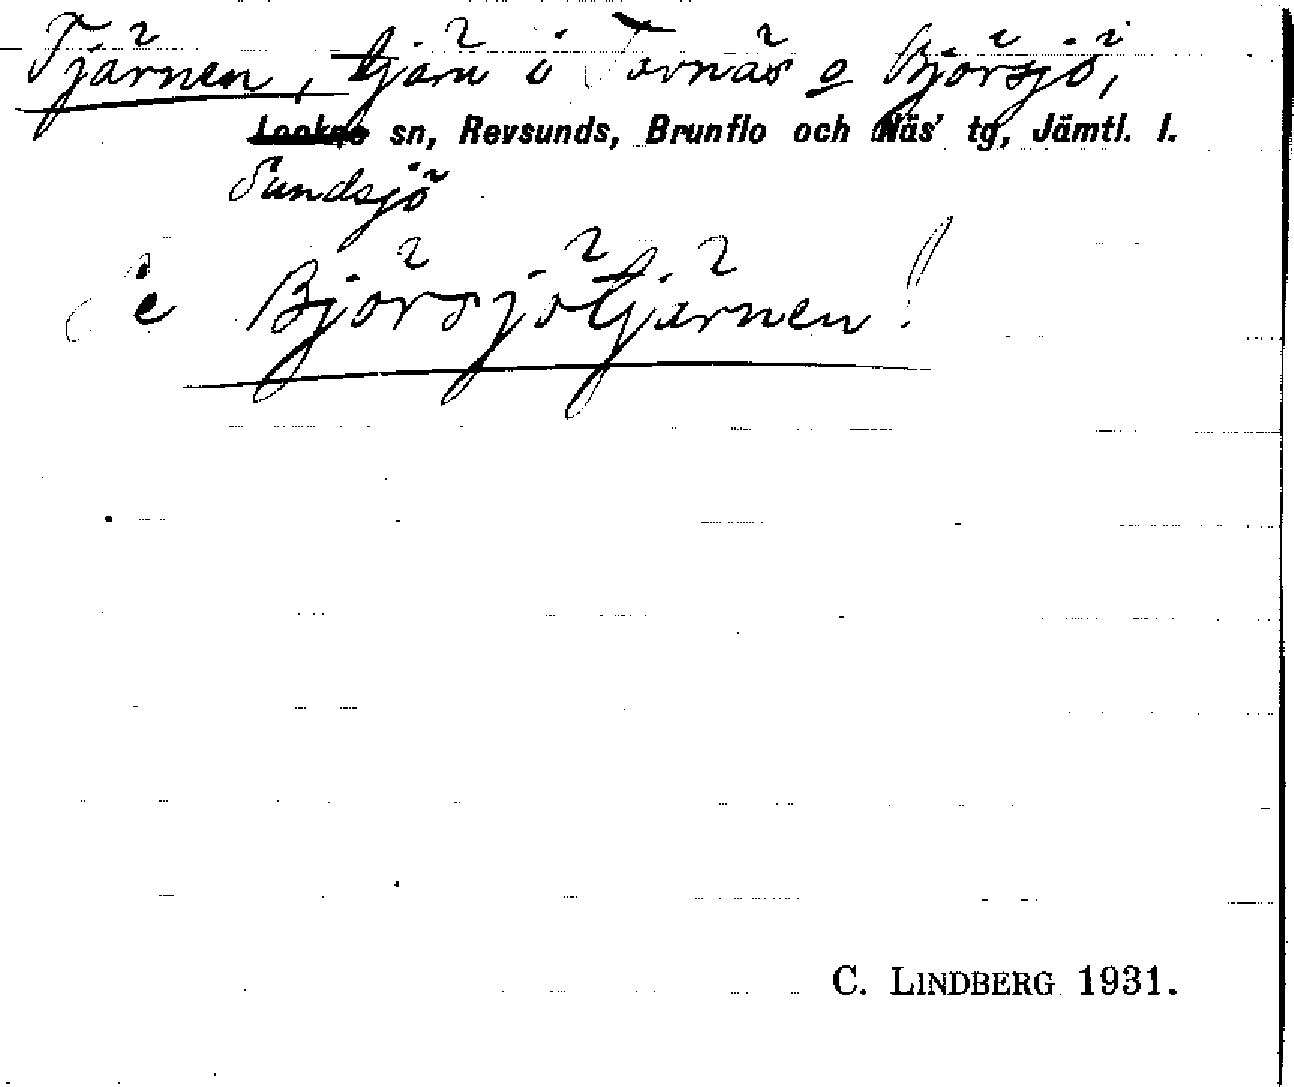 Tjärnen, tjärn i Fornäs o Björsjö,
Lockne sn, Revsunds, Brunflo och Näs' tg, Jämtl. l.
Sundsjö
Björsjötjärnen!
C. LINDBERG 1931.